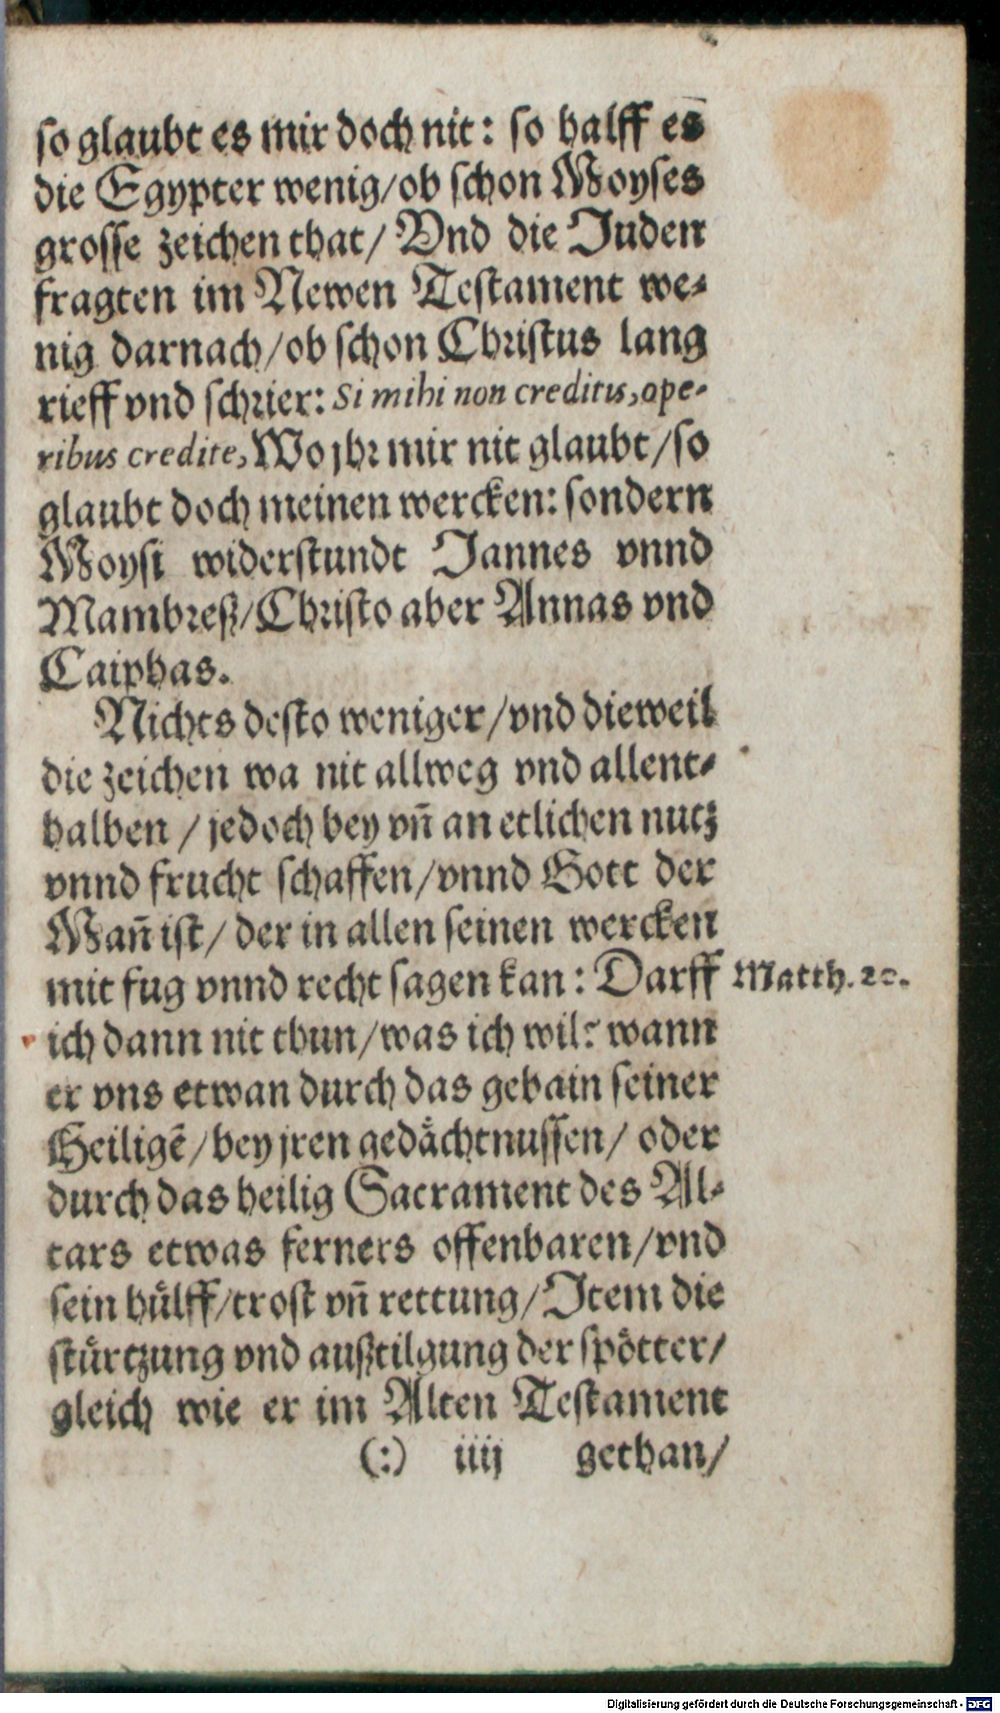 so glaubt es mir doch nit: so halff es
die Egypter wenig/ob schon Moyses
grosse zeichen that/ Vnd die Juden
fragten im Newen Testament we-
nig darnach/ob schon Christus lang
rieff vnd schrier: Si mihi non creditis, ope-
ribus credite, Wo jhr mir nit glaubt/so
glaubt doch meinen wercken: sondern
Moysi widerstundt Jannes vnnd
Mambreß/Christo aber Annas vnd
Caiphas.
Nichts desto weniger/vnd dieweil
die zeichen wa nit allweg vnd allent-
halben / jedoch bey vñ an etlichen nutz
vnnd frucht schaffen/vnnd Gott der
Mañ ist/ der in allen seinen wercken
mit fug vnnd recht sagen kan: Darff Matth. 20.
ich dann nit thun/was ich wil? wann
er vns etwan durch das gebain seiner
Heiligẽ/bey jren gedächtnussen/ oder
durch das heilig Sacrament des Al-
tars etwas ferners offenbaren/vnd
sein hülff/trost vñ rettung/Item die
stürtzung vnd außtilgung der spötter/
gleich wie er im Alten Testament
(:) iiij gethan/
Digitalisierung gefördert durch die Deutsche Forschungsgemeinschaft - DFG